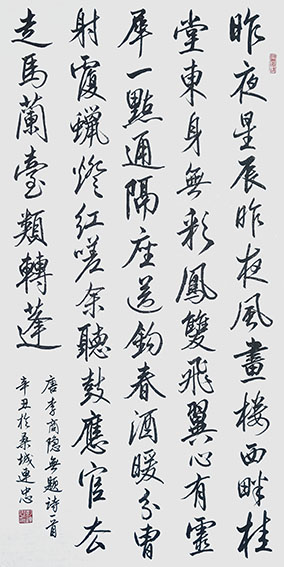 昨夜星辰昨夜風畫楼西畔桂
堂東身無彩鳳雙飛翼心有靈
犀一點通隔座送鈎春酒暖分曹
射覆蠟燈紅嗟余聽鼓應官去
走馬蘭臺類轉蓬
唐李商隱無題詩一首
辛丑於桑城建忠